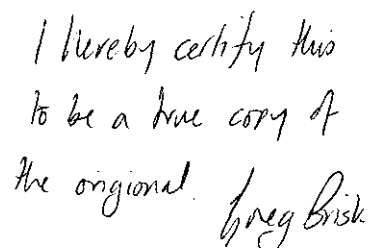 I hereby certify this
to be a true copy of
the origional.
Greg Brisk